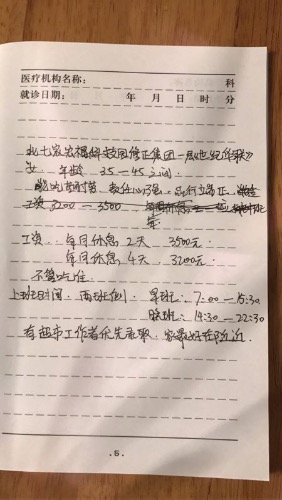 医疗机构名称: 科
就诊日期: 年 月 日 时 分
北七家宏福科技园修正集团一层世纪华联》
女, 年龄 35—45之间.
能吃苦耐劳, 责任心强, 品行端正,
工资 3200—3500,
工资. 每月休息2天 3500元.
每月休息4天 3200元.
不管吃住.
上班时间, 两班倒, 早班: 7:00—15:30
晚班: 14:30—22:30
有超市工作者优先录取, 家最好在附近.
.5.